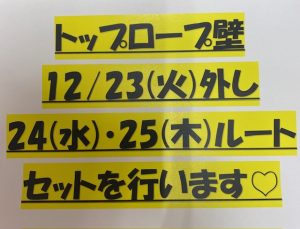 トップロープ壁
12/23(火)外し
24(水)・25(木)ルート
セットを行います♡